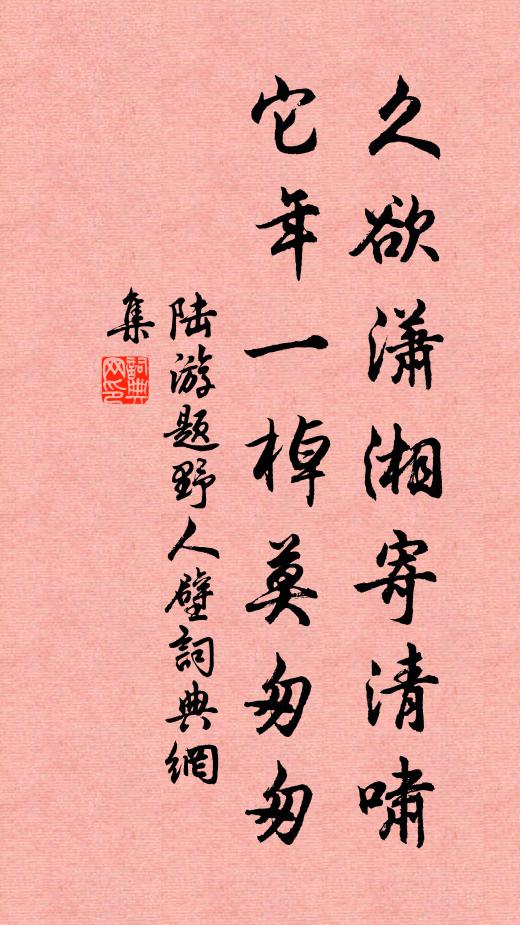 久欲瀟湘寄清嘯
它年一棹莫匆匆
陆游题野人壁詞典網
集
詞典
网印